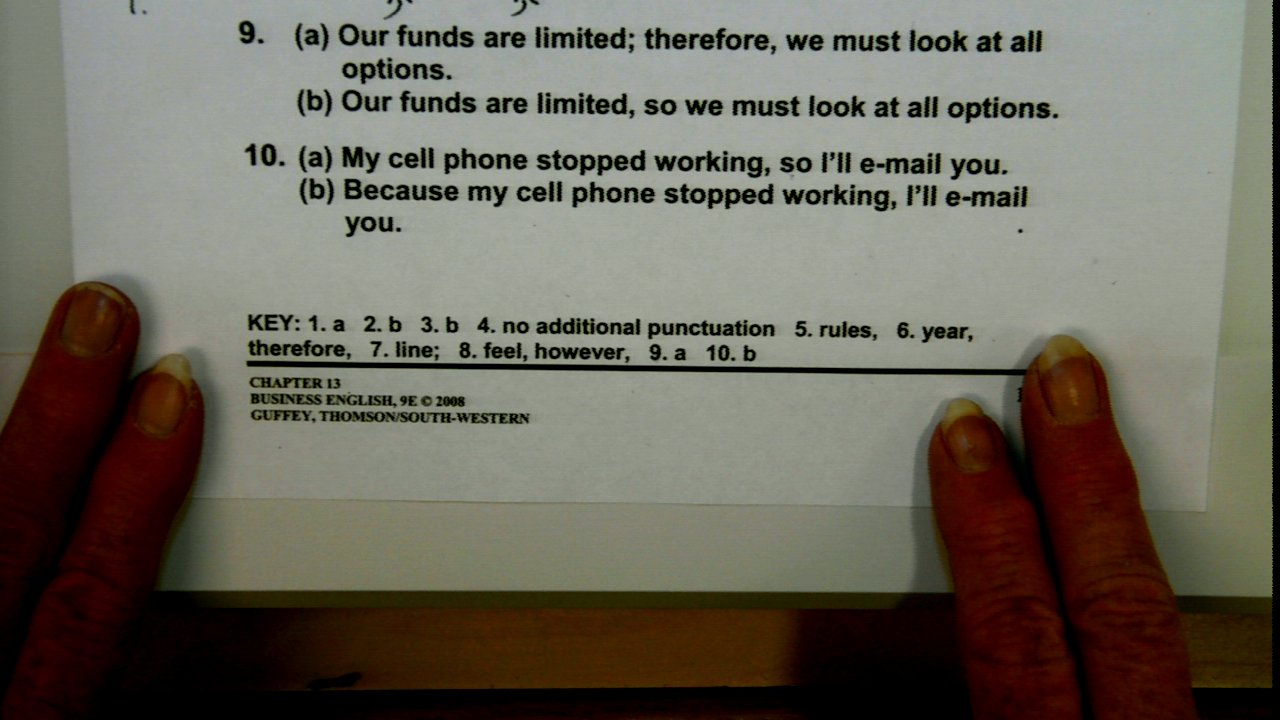 9. (a) Our funds are limited; therefore, we must look at all
options.
(b) Our funds are limited, so we must look at all options.
10. (a) My cell phone stopped working, so I'll e-mail you.
(b) Because my cell phone stopped working, I'll e-mail
you.
KEY: 1. a 2. b 3. b 4. no additional punctuation 5. rules, 6. year,
therefore, 7. line; 8. feel, however, 9. a 10. b
CHAPTER 13
BUSINESS ENGLISH, 9E © 2008
GUFFEY, THOMSON/SOUTH-WESTERN